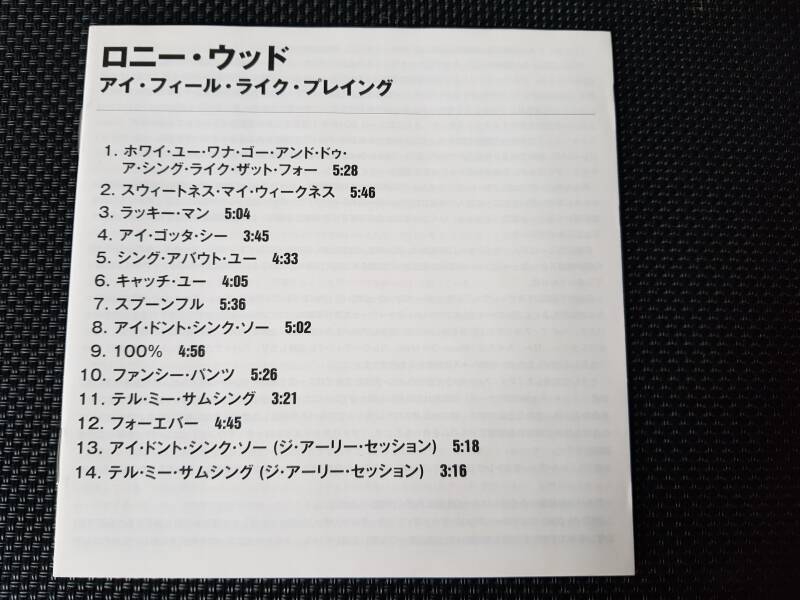 ロニー・ウッド
アイ・フィール・ライク・プレイング
1. ホワイ・ユー・ワナ・ゴー・アンド・ドゥ・
ア・シング・ライク・ザット・フォー 5:28
2. スウィートネス・マイ・ウィークネス 5:46
3. ラッキー・マン 5:04
4. アイ・ゴッタ・シー 3:45
5. シング・アバウト・ユー 4:33
6. キャッチ・ユー 4:05
7. スプーンフル 5:36
8. アイ・ドント・シンク・ソー 5:02
9. 100% 4:56
10. ファンシー・パンツ 5:26
11. テル・ミー・サムシング 3:21
12. フォーエバー 4:45
13. アイ・ドント・シンク・ソー (ジ・アーリー・セッション) 5:18
14. テル・ミー・サムシング (ジ・アーリー・セッション) 3:16